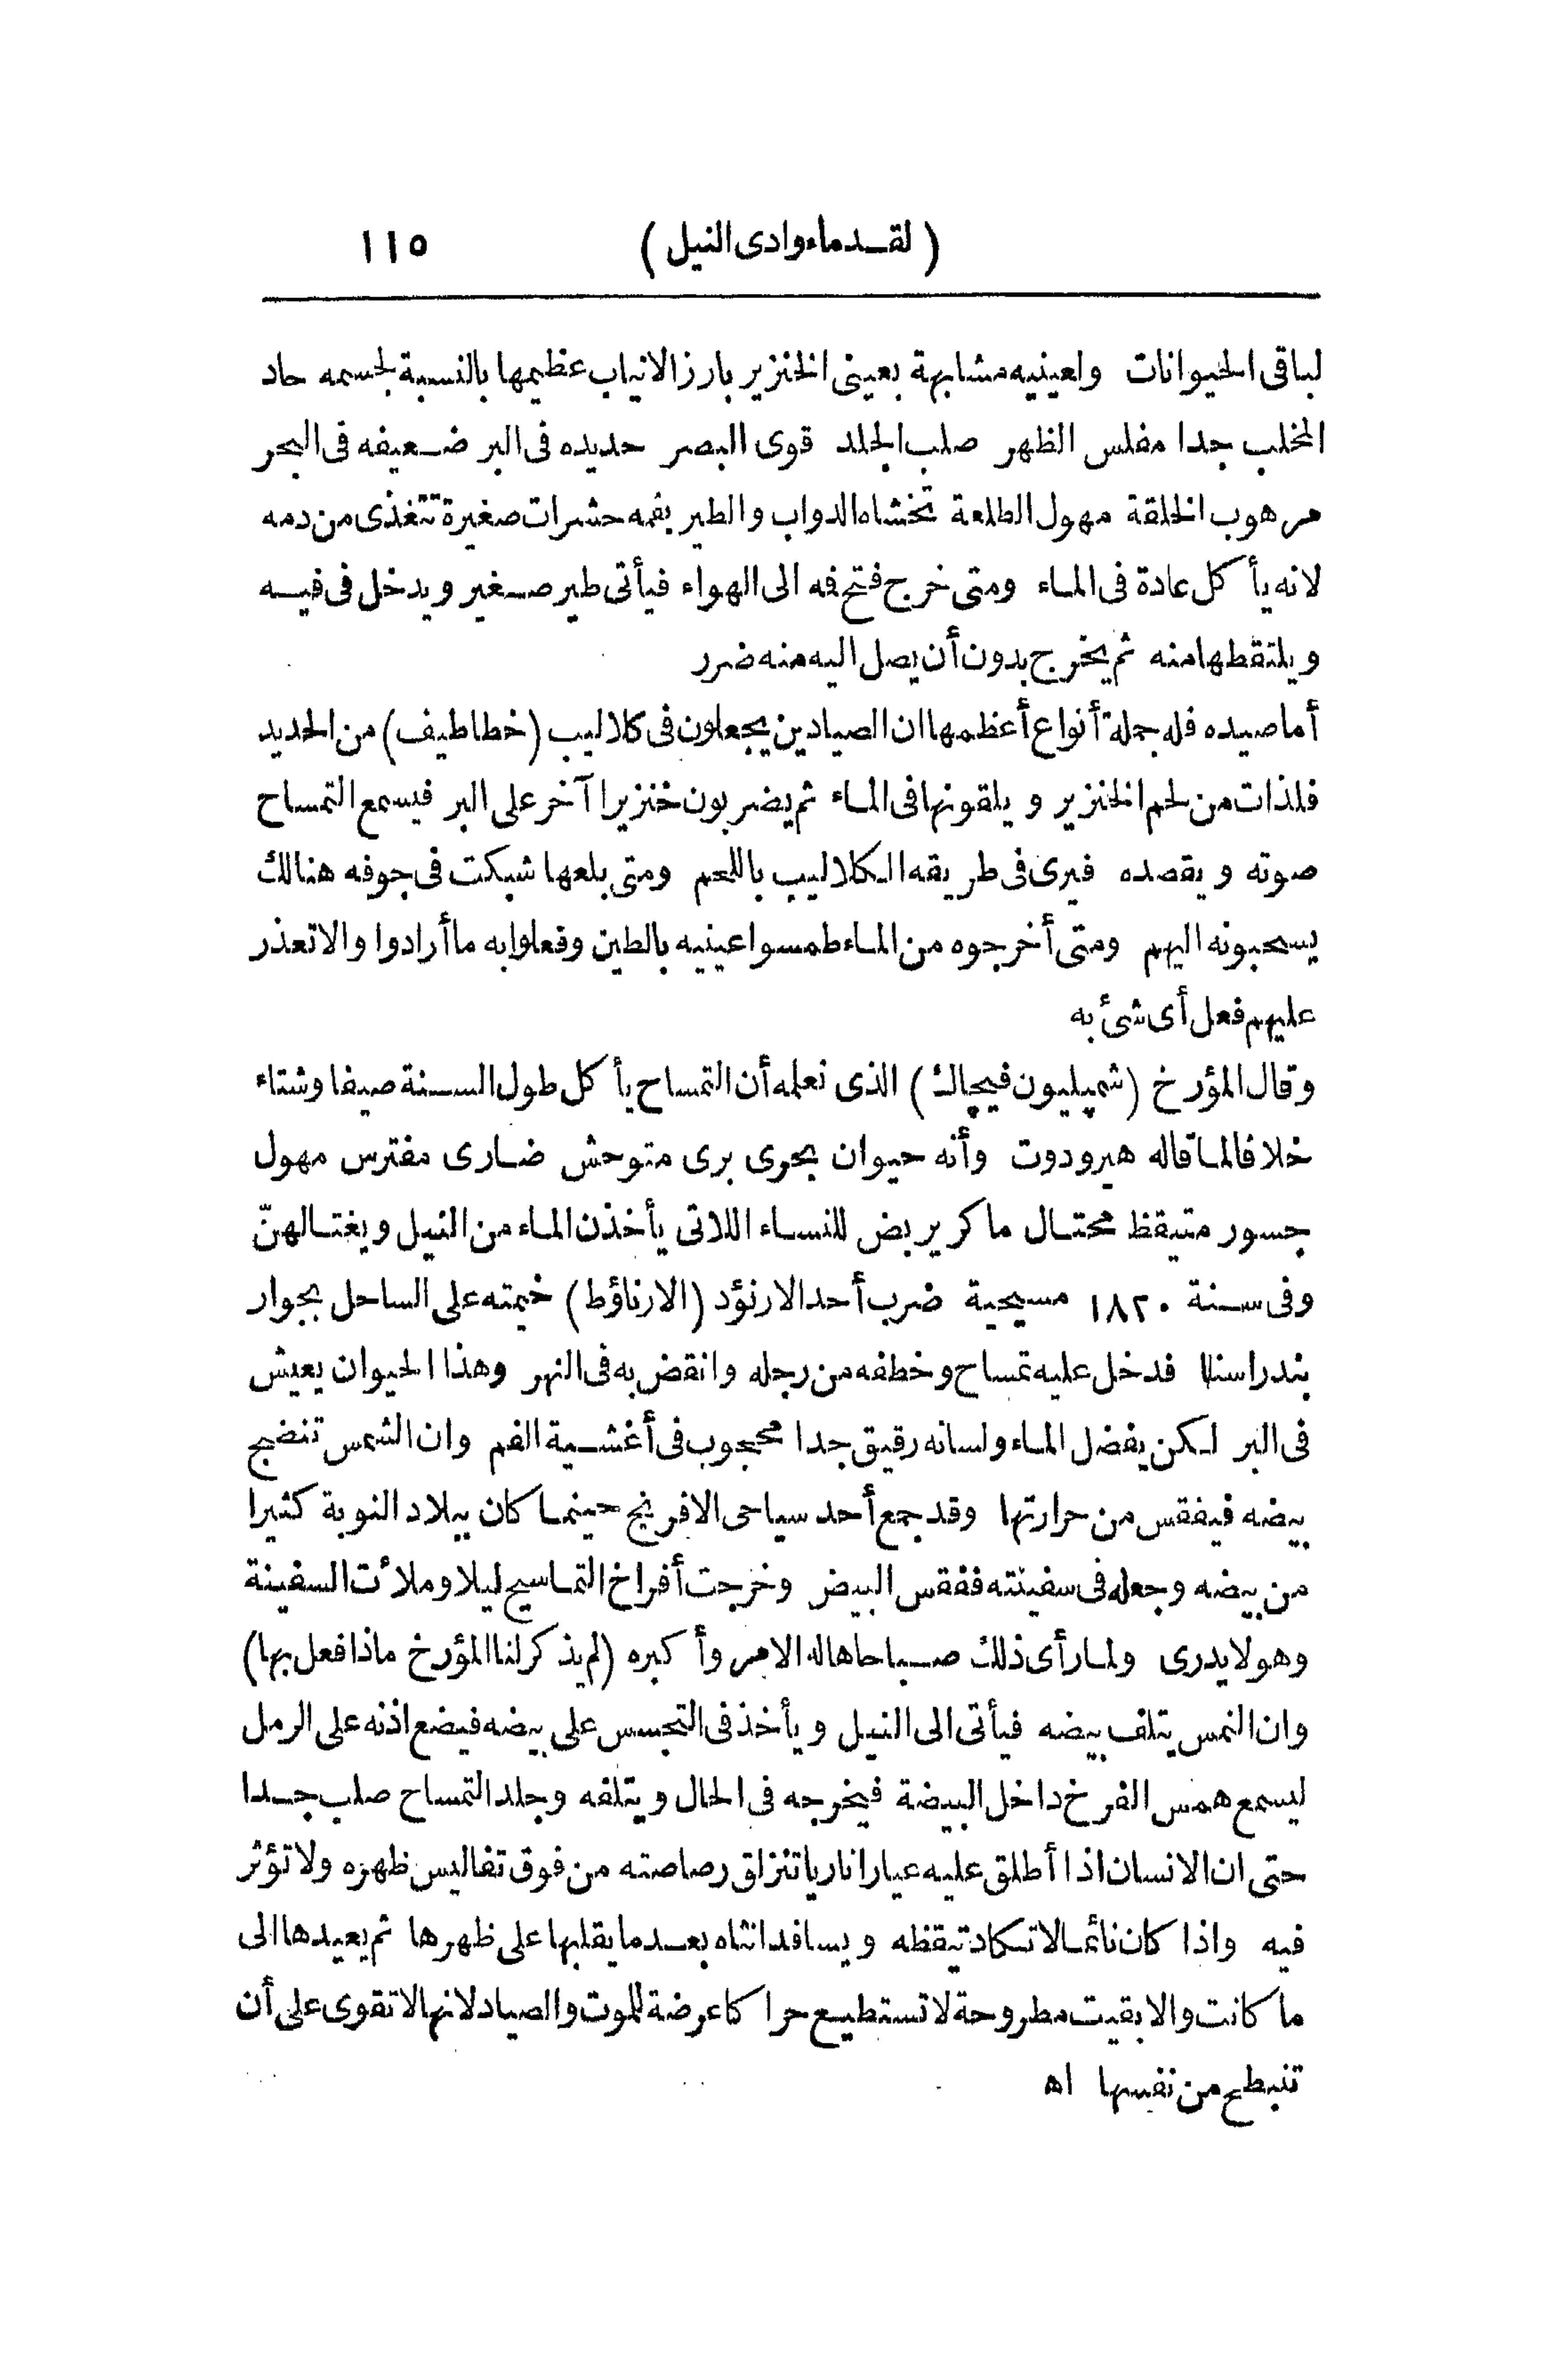 (لقدماء وادى النيل) ١١٥
لباقى الحيوانات ولعينيه مشابهة بعينى الخنزير بارز الانياب عظيمها بالنسبة لجسمه حاد
المخلب جدا مفلس الظهر صلب الجلد قوى البصر حديده فى البر ضعيفه فى البحر
مرهوب الخلقة مهول الطلعة تخشاه الدواب والطير بفمه حشرات صغيرة تتغذى من دمه
لانه يأكل عادة فى الماء ومتى خرج فتح فه الى الهواء فيأتى طير صغير ويدخل فى فيه
ويلتقطها منه ثم يخرج بدون أن يصل اليه منه ضرر
أما صيده فله جملة أنواع أعظمها ان الصيادين يجعلون فى كلاليب (خطاطيف) من الحديد
فلذات من لحم الخنزير ويلقونها فى الماء ثم يضربون خنزيرا آخر على البر فيسمع التمساح
صوته ويقصده فيرى فى طريقه الكلاليب باللحم ومتى بلعها شبكت فى جوفه هنالك
يسحبونه اليهم ومتى أخرجوه من الماء طمسوا عينيه بالطين وفعلوا به ما أرادوا والا تعذر
عليهم فعل أى شئ به
وقال المؤرخ (شمپليون فيچاك) الذى نعلمه أن التمساح يأكل طول السنة صيفا وشتاء
خلافا لما قاله هيرودوت وأنه حيوان بحرى برى متوحش ضارى مفترس مهول
جسور متيقظ محتال ماكر يربض للنساء اللاتى يأخذن الماء من النيل ويغتالهنّ
وفى سنة ١٨٢٠ مسيحية ضرب أحد الارنؤد (الارناؤط) خيمته على الساحل بجوار
بندر اسنا فدخل عليه تمساح وخطفه من رجله وانقض به فى النهر وهذا الحيوان يعيش
فى البر لكن يفضل الماء ولسانه رقيق جدا محجوب فى أغشية الفم وان الشمس تنضج
بيضه فيفقس من حرارتها وقد جمع أحد سياحى الافرنج حينما كان ببلاد النوبة كثيرا
من بيضه وجعله فى سفينته ففقس البيض وخرجت أفراخ التماسيح ليلا وملأت السفينة
وهو لا يدرى ولما رأى ذلك صباحا هاله الامر وأكبره (لم يذكر لنا المؤرخ ماذا فعل بها)
وان النمس يتلف بيضه فيأتى الى النيل ويأخذ فى التجسس على بيضه فيضع اذنه على الرمل
ليسمع همس الفرخ داخل البيضة فيخرجه فى الحال ويتلفه وجلد التمساح صلب جدا
حتى ان الانسان اذا أطلق عليه عيارا ناريا تنزلق رصاصته من فوق تفاليس ظهره ولا تؤثر
فيه واذا كان نائما لا تكاد تيقظه ويسافد انثاه بعدما يقلبها على ظهرها ثم يعيدها الى
ما كانت والا بقيت مطروحة لا تستطيع حراكا عرضة للموت والصياد لانها لا تقوى على أن
تنبطح من نفسها اه